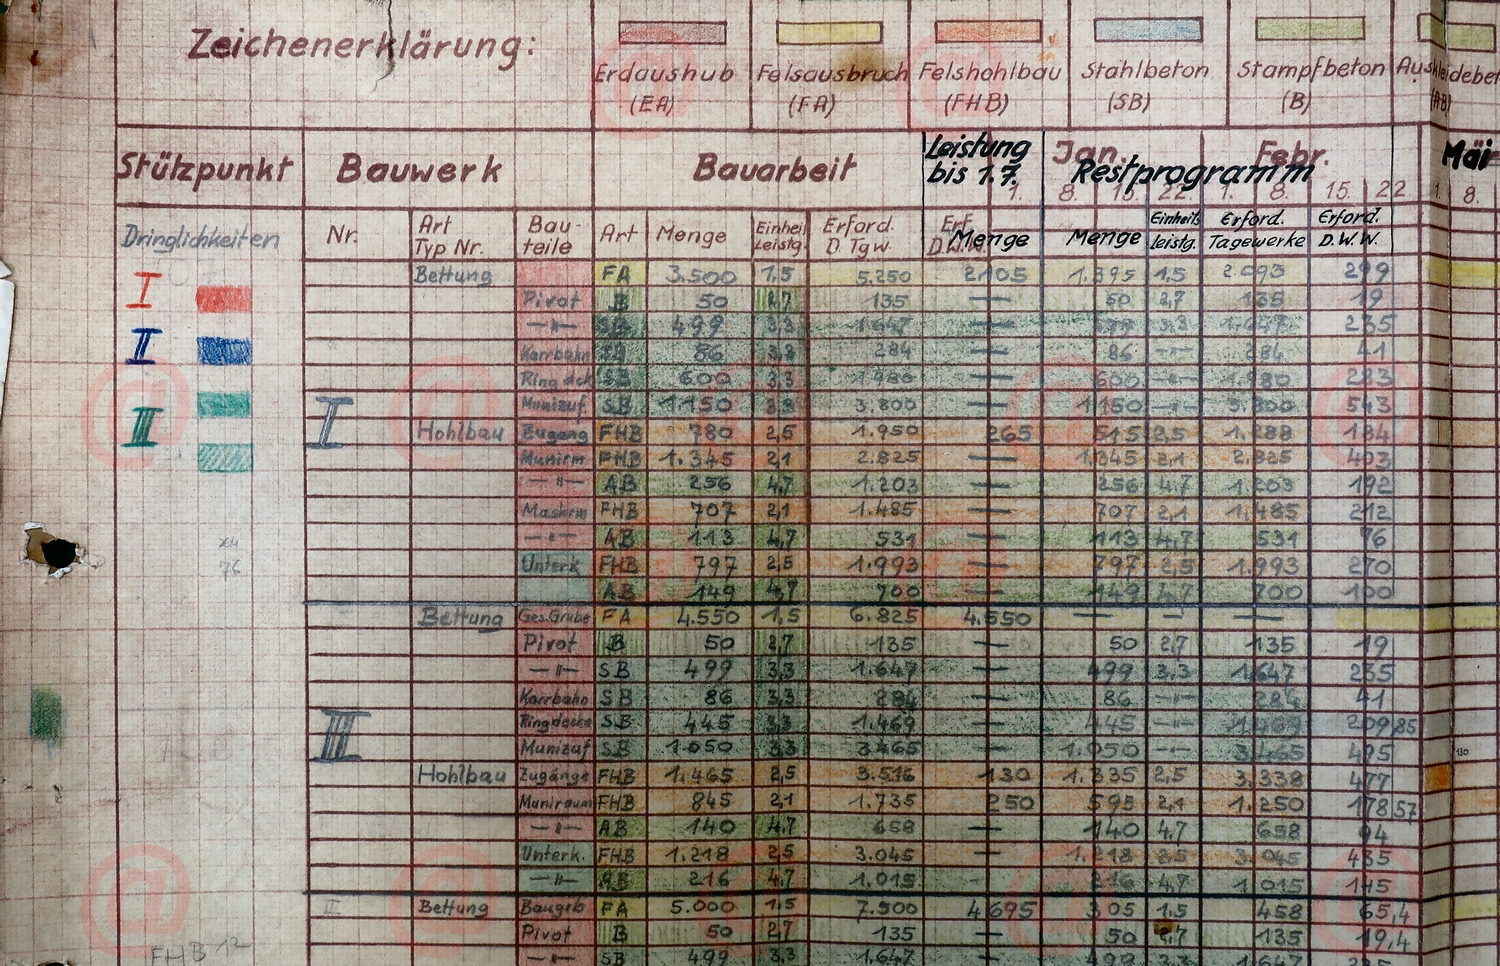 Zeichenerklärung:
Erdaushub Felsausbruch Felshohlbau Stahlbeton Stampfbeton
(EA) (FA) (FHB) (SB) (B) (AB)
Stützpunkt Bauwerk Bauarbeit Leistung bis 1.7. Jan. Febr. Restprogramm Mai
1. 8. 15. 22. 1. 8. 15. 22 1. 8.
Dringlichkeiten Nr. Art Typ Nr. Bau-teile Art Menge Einheit Leistg. Erford. D.Tgw. Erf. Menge Menge Einheits Leistg. Erford. Tagewerke Erford. D.W.W.
I
II
III
Bettung FA 3.500 1,5 5.250 2105 1.395 1,5 2.093 299
Pivot B 50 2,7 135 — 50 2,7 135 19
—"— SB 499 3,3 1.647 — 499 3,3 1.647 235
Karrbahn SB 86 3,3 284 — 86 —"— 284 41
Ringdck SB 600 3,3 1.980 — 600 —"— 1.980 283
I Munizuf. SB 1150 3,3 3.800 — 1150 —"— 3.800 543
Hohlbau Zugang FHB 780 2,5 1.950 265 515 2,5 1.288 184
Munirm FHB 1.345 2,1 2.825 — 1.345 2,1 2.825 403
—"— AB 256 4,7 1.203 — 256 4,7 1.203 192
Maschrm FHB 707 2,1 1.485 — 707 2,1 1.485 212
—"— AB 113 4,7 531 — 113 4,7 531 76
Unterk FHB 797 2,5 1.993 — 797 2,5 1.993 270
AB 149 4,7 700 — 149 4,7 700 100
76
Bettung Ges.Grube FA 4.550 1,5 6.825 4.550 — — —
Pivot B 50 2,7 135 — 50 2,7 135 19
—"— SB 499 3,3 1.647 — 499 3,3 1.647 235
Karrbahn SB 86 3,3 284 — 86 —"— 284 41
II Ringdecke SB 445 3,3 1.469 — 445 —"— 1.469 209,85
Munizuf SB 1050 3,3 3.465 — 1.050 —"— 3.465 495 130
Hohlbau Zugänge FHB 1.465 2,5 3.516 130 1.335 2,5 3.338 477
Muniraum FHB 845 2,1 1.735 250 595 2,1 1.250 178,57
—"— AB 140 4,7 658 — 140 4,7 658 94
Unterk. FHB 1.218 2,5 3.045 — 1.218 2,5 3.045 435
—"— AB 216 4,7 1.015 - 216 4,7 1.015 145
III Bettung Baugrb FA 5.000 1,5 7.500 4695 305 1,5 458 65,4
Pivot B 50 2,7 135 — 50 2,7 135 19,4
—"— SB 499 3,3 1.647 — 499 3,3 1.647 235
FHB 12